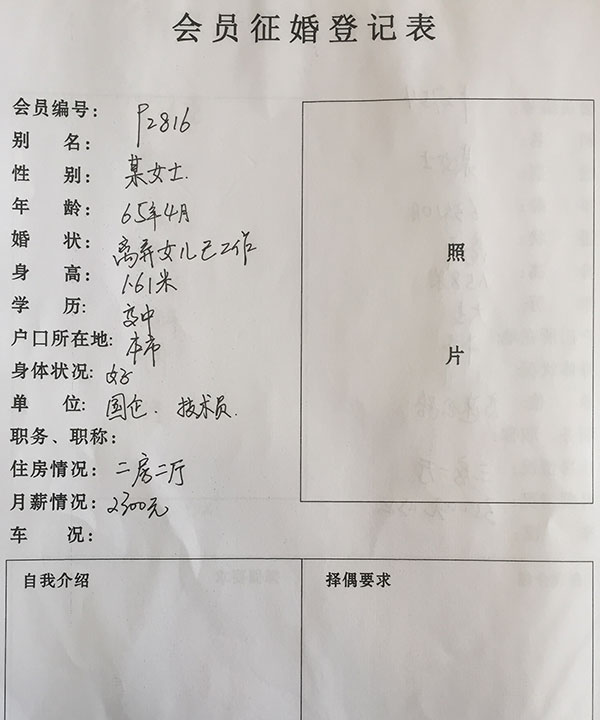 会员征婚登记表
会员编号: P2816
别 名:
性 别: 某女士.
年 龄: 65年4月
婚 状: 离异女儿已工作
身 高: 1.61米
学 历: 高中
户口所在地: 本市
身体状况: 好
单 位: 国企. 技术员.
职务、职称:
住房情况: 二房二厅
月薪情况: 2300元
车 况:
照
片
自我介绍
择偶要求